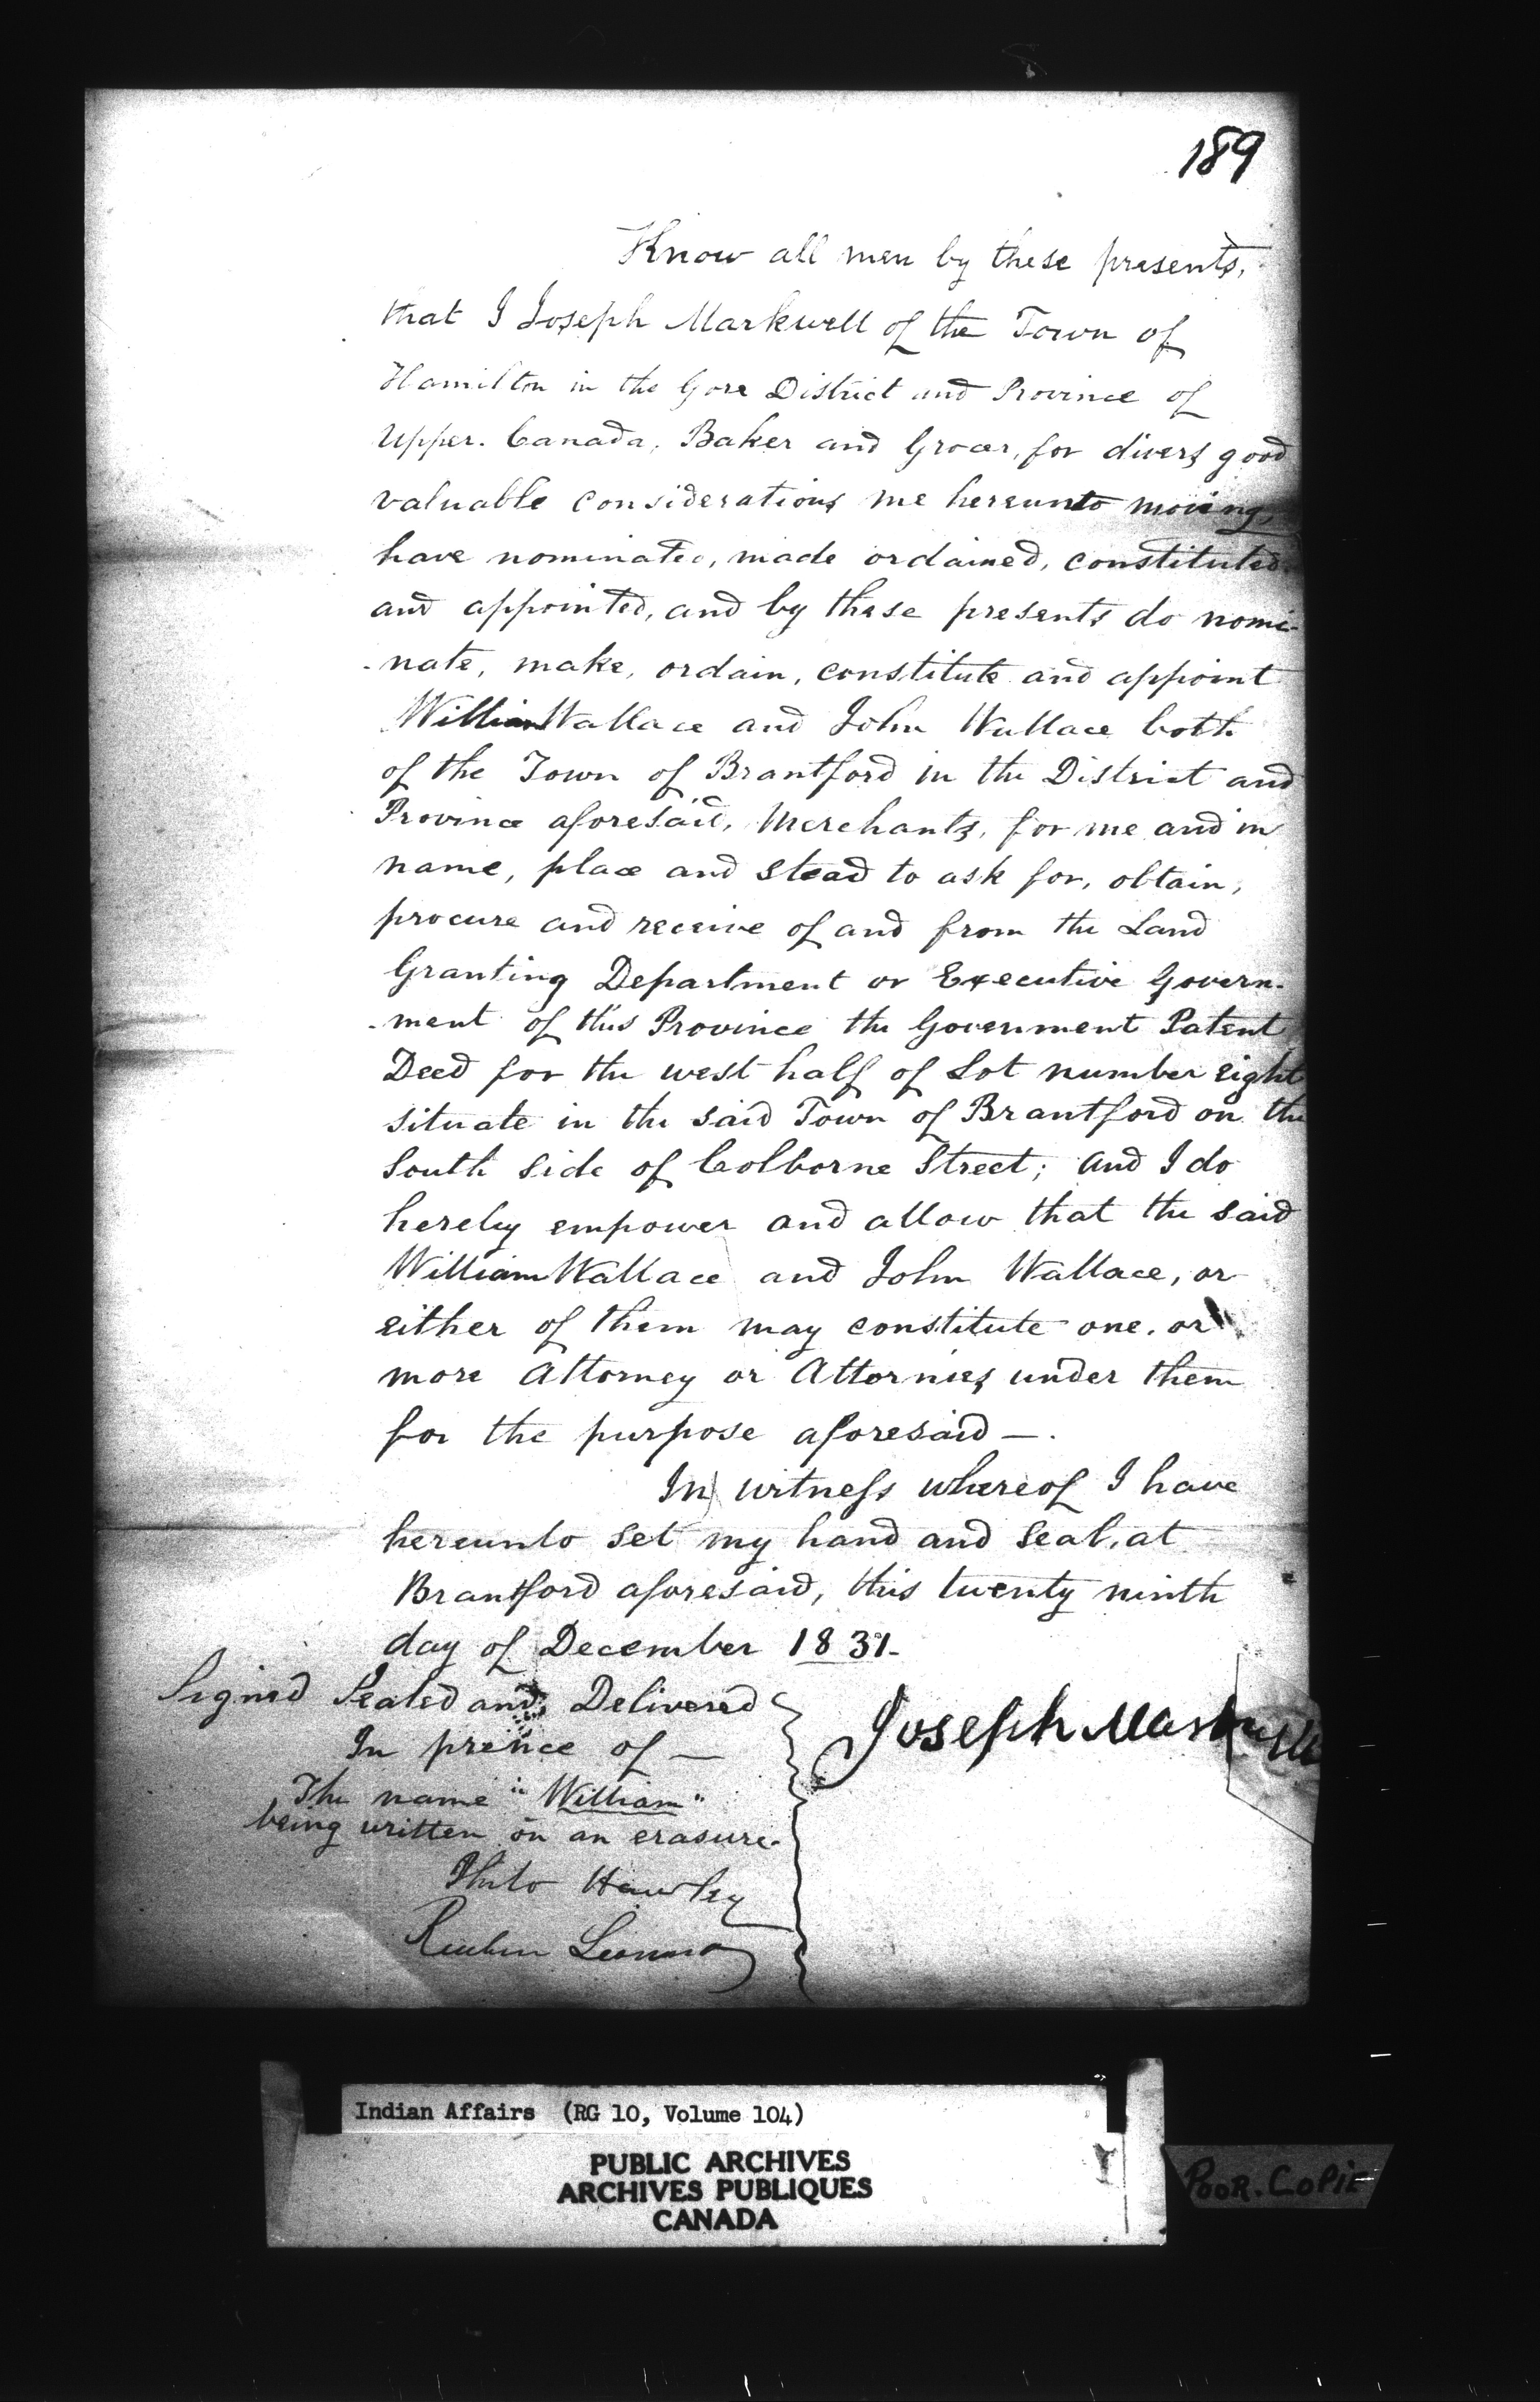 189
Know all men by these presents,
that I Joseph Markwell of the Town of
Hamilton in the Gore District and Province of
Upper. Canada, Baker and Grocer, for divers good
valuable considerations me hereunto moving,
have nominated, made ordained, constituted
and appointed, and by these presents do nomi-
-nate, make, ordain, constitute and appoint
William Wallace and John Wallace both
of the Town of Brantford in the District and
Province aforesaid, Merchants, for me and in
name, place and stead to ask for, obtain,
procure and receive of and from the Land
Granting Department or Executive Govern-
-ment of this Province the Government Patent
Deed for the west half of Lot number eight
situate in the said Town of Brantford on the
South side of Colborne Street; and I do
hereby empower and allow that the said
William Wallace and John Wallace, or
either of them may constitute one. or
more Attorney or Attornies under them
for the purpose aforesaid —.
In witness whereof I have
hereunto set my hand and seal, at
Brantford aforesaid, this twenty ninth
day of December 1837-
Signed Sealed and Delivered
In prence of —
Joseph Markwell
The name "William"
being written on an erasure-
Philo Hawley
Reuben Leonard
Indian Affairs (RG 10, Volume 104)
PUBLIC ARCHIVES
ARCHIVES PUBLIQUES
CANADA
POOR. COPIE